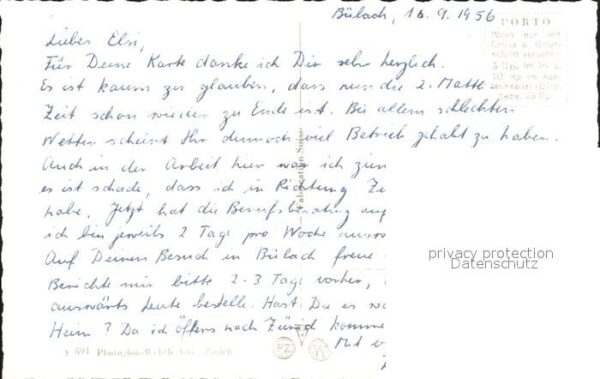 Bülach, 16.9.1956
PORTO
Wenn nur mit
Gruss u. Unter-
schrift versehen
5 Rp. im In-
Liebes Elsi,
Für Deine Karte danke ich Dir sehr herzlich.
Es ist kaum zu glauben, dass nun die 2. Matte
Zeit schon wieder zu Ende ist. Bei allem schlechten
Wetter scheint Ihr dennoch viel Betrieb gehabt zu haben.
Auch in der Arbeit hier war ich
es ist schade, dass ich in Richtung
habe. Jetzt hat die Berufsberatung
ich bin jeweils 2 Tage pro Woche
Auf Deinen Besuch in Bülach freue
Berichte mir bitte 2-3 Tage vorher,
auswärts Leute bestelle. Hast Du es
Heim? Da ich öfters nach Zürich komme
Mit
Fabrication Suisse
Photoglob-Wehrli A.G., Zürich
privacy protection
Datenschutz